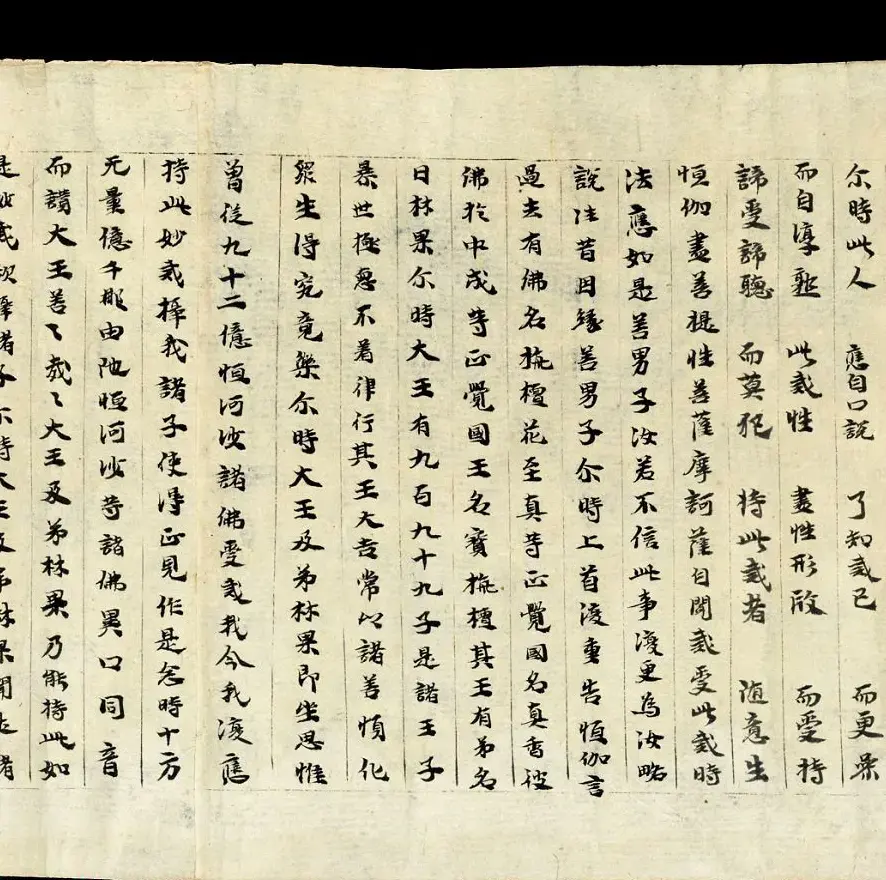 尔時此人 應自口說 了知戒已 而更
而自淳 此戒性 盡性形 而受持
諦受諦聽 而莫犯 持此戒者 随意生
恒伽盡善提性菩薩摩訶薩自聞戒受此戒時
法應如是善男子汝若不信此事渡更為汝略
說法昔因緣善男子尔時上首渡重告恒伽言
過去有佛名栴檀花至真等正覺國名真香彼
佛於中成等正覺國王名寳栴檀其王有弟名
日林果尔時大王有九百九十九子是諸王子
暴世極惡不着律行其王大吉常以諸善順化
眾生得究竟樂尔時大王及弟林果即坐思惟
曾從九十二億恒河沙諸佛受戒我今我渡應
持此妙戒擇我諸子使得正見作是念時十方
无量億千那由陁恒河沙等諸佛異口同音
而讃大王善〻哉〻大王及弟林果乃能持此如
是妙戒 諸子尔時大王及弟林果聞 者